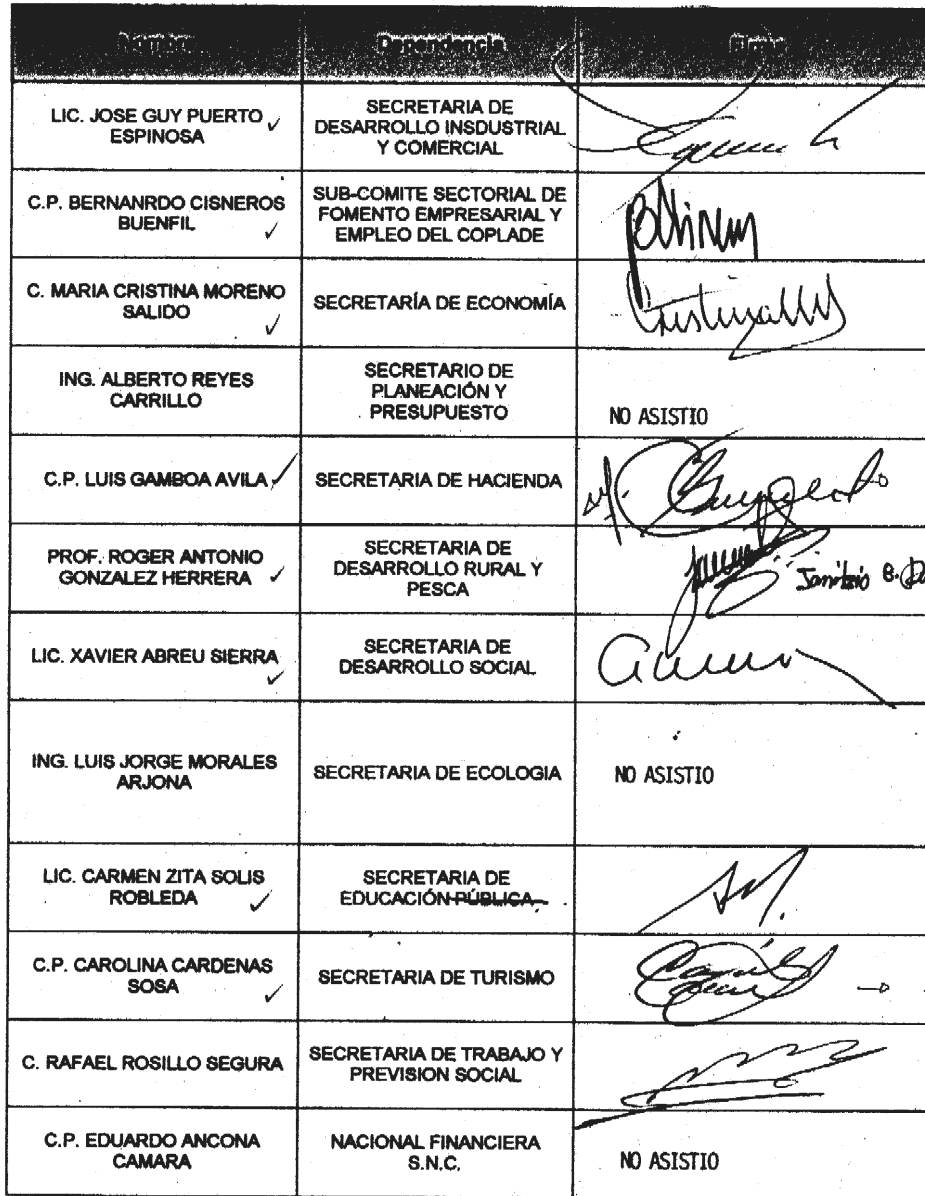 Nombre Dependencia Firma
LIC. JOSE GUY PUERTO
ESPINOSA
SECRETARIA DE
DESARROLLO INSDUSTRIAL
Y COMERCIAL
C.P. BERNANRDO CISNEROS
BUENFIL
SUB-COMITE SECTORIAL DE
FOMENTO EMPRESARIAL Y
EMPLEO DEL COPLADE
C. MARIA CRISTINA MORENO
SALIDO
SECRETARÍA DE ECONOMÍA
ING. ALBERTO REYES
CARRILLO
SECRETARIO DE
PLANEACIÓN Y
PRESUPUESTO
NO ASISTIO
C.P. LUIS GAMBOA AVILA
SECRETARIA DE HACIENDA
PROF. ROGER ANTONIO
GONZALEZ HERRERA
SECRETARIA DE
DESARROLLO RURAL Y
PESCA
LIC. XAVIER ABREU SIERRA
SECRETARIA DE
DESARROLLO SOCIAL
ING. LUIS JORGE MORALES
ARJONA
SECRETARIA DE ECOLOGIA
NO ASISTIO
LIC. CARMEN ZITA SOLIS
ROBLEDA
SECRETARIA DE
EDUCACIÓN PÚBLICA
C.P. CAROLINA CARDENAS
SOSA
SECRETARIA DE TURISMO
C. RAFAEL ROSILLO SEGURA
SECRETARIA DE TRABAJO Y
PREVISION SOCIAL
C.P. EDUARDO ANCONA
CAMARA
NACIONAL FINANCIERA
S.N.C.
NO ASISTIO